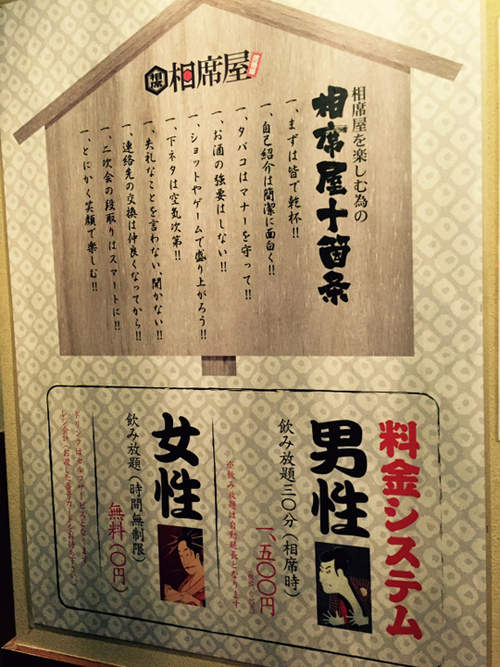 相席屋
相席屋を楽しむ為の
相席屋十箇条
一、まずは皆で乾杯!!
一、自己紹介は簡潔に面白く!!
一、タバコはマナーを守って!!
一、お酒の強要はしない!!
一、ショットやゲームで盛り上がろう!!
一、下ネタは空気次第!!
一、失礼なことを言わない、聞かない!!
一、連絡先の交換は仲良くなってから!!
一、二次会の段取りはスマートに!!
一、とにかく笑顔で楽しむ!!
料金システム
男性
飲み放題三〇分(相席時)
一、五〇〇円
※飲み放題は自動延長となります。
女性
飲み放題(時間無制限)
無料(〇円)